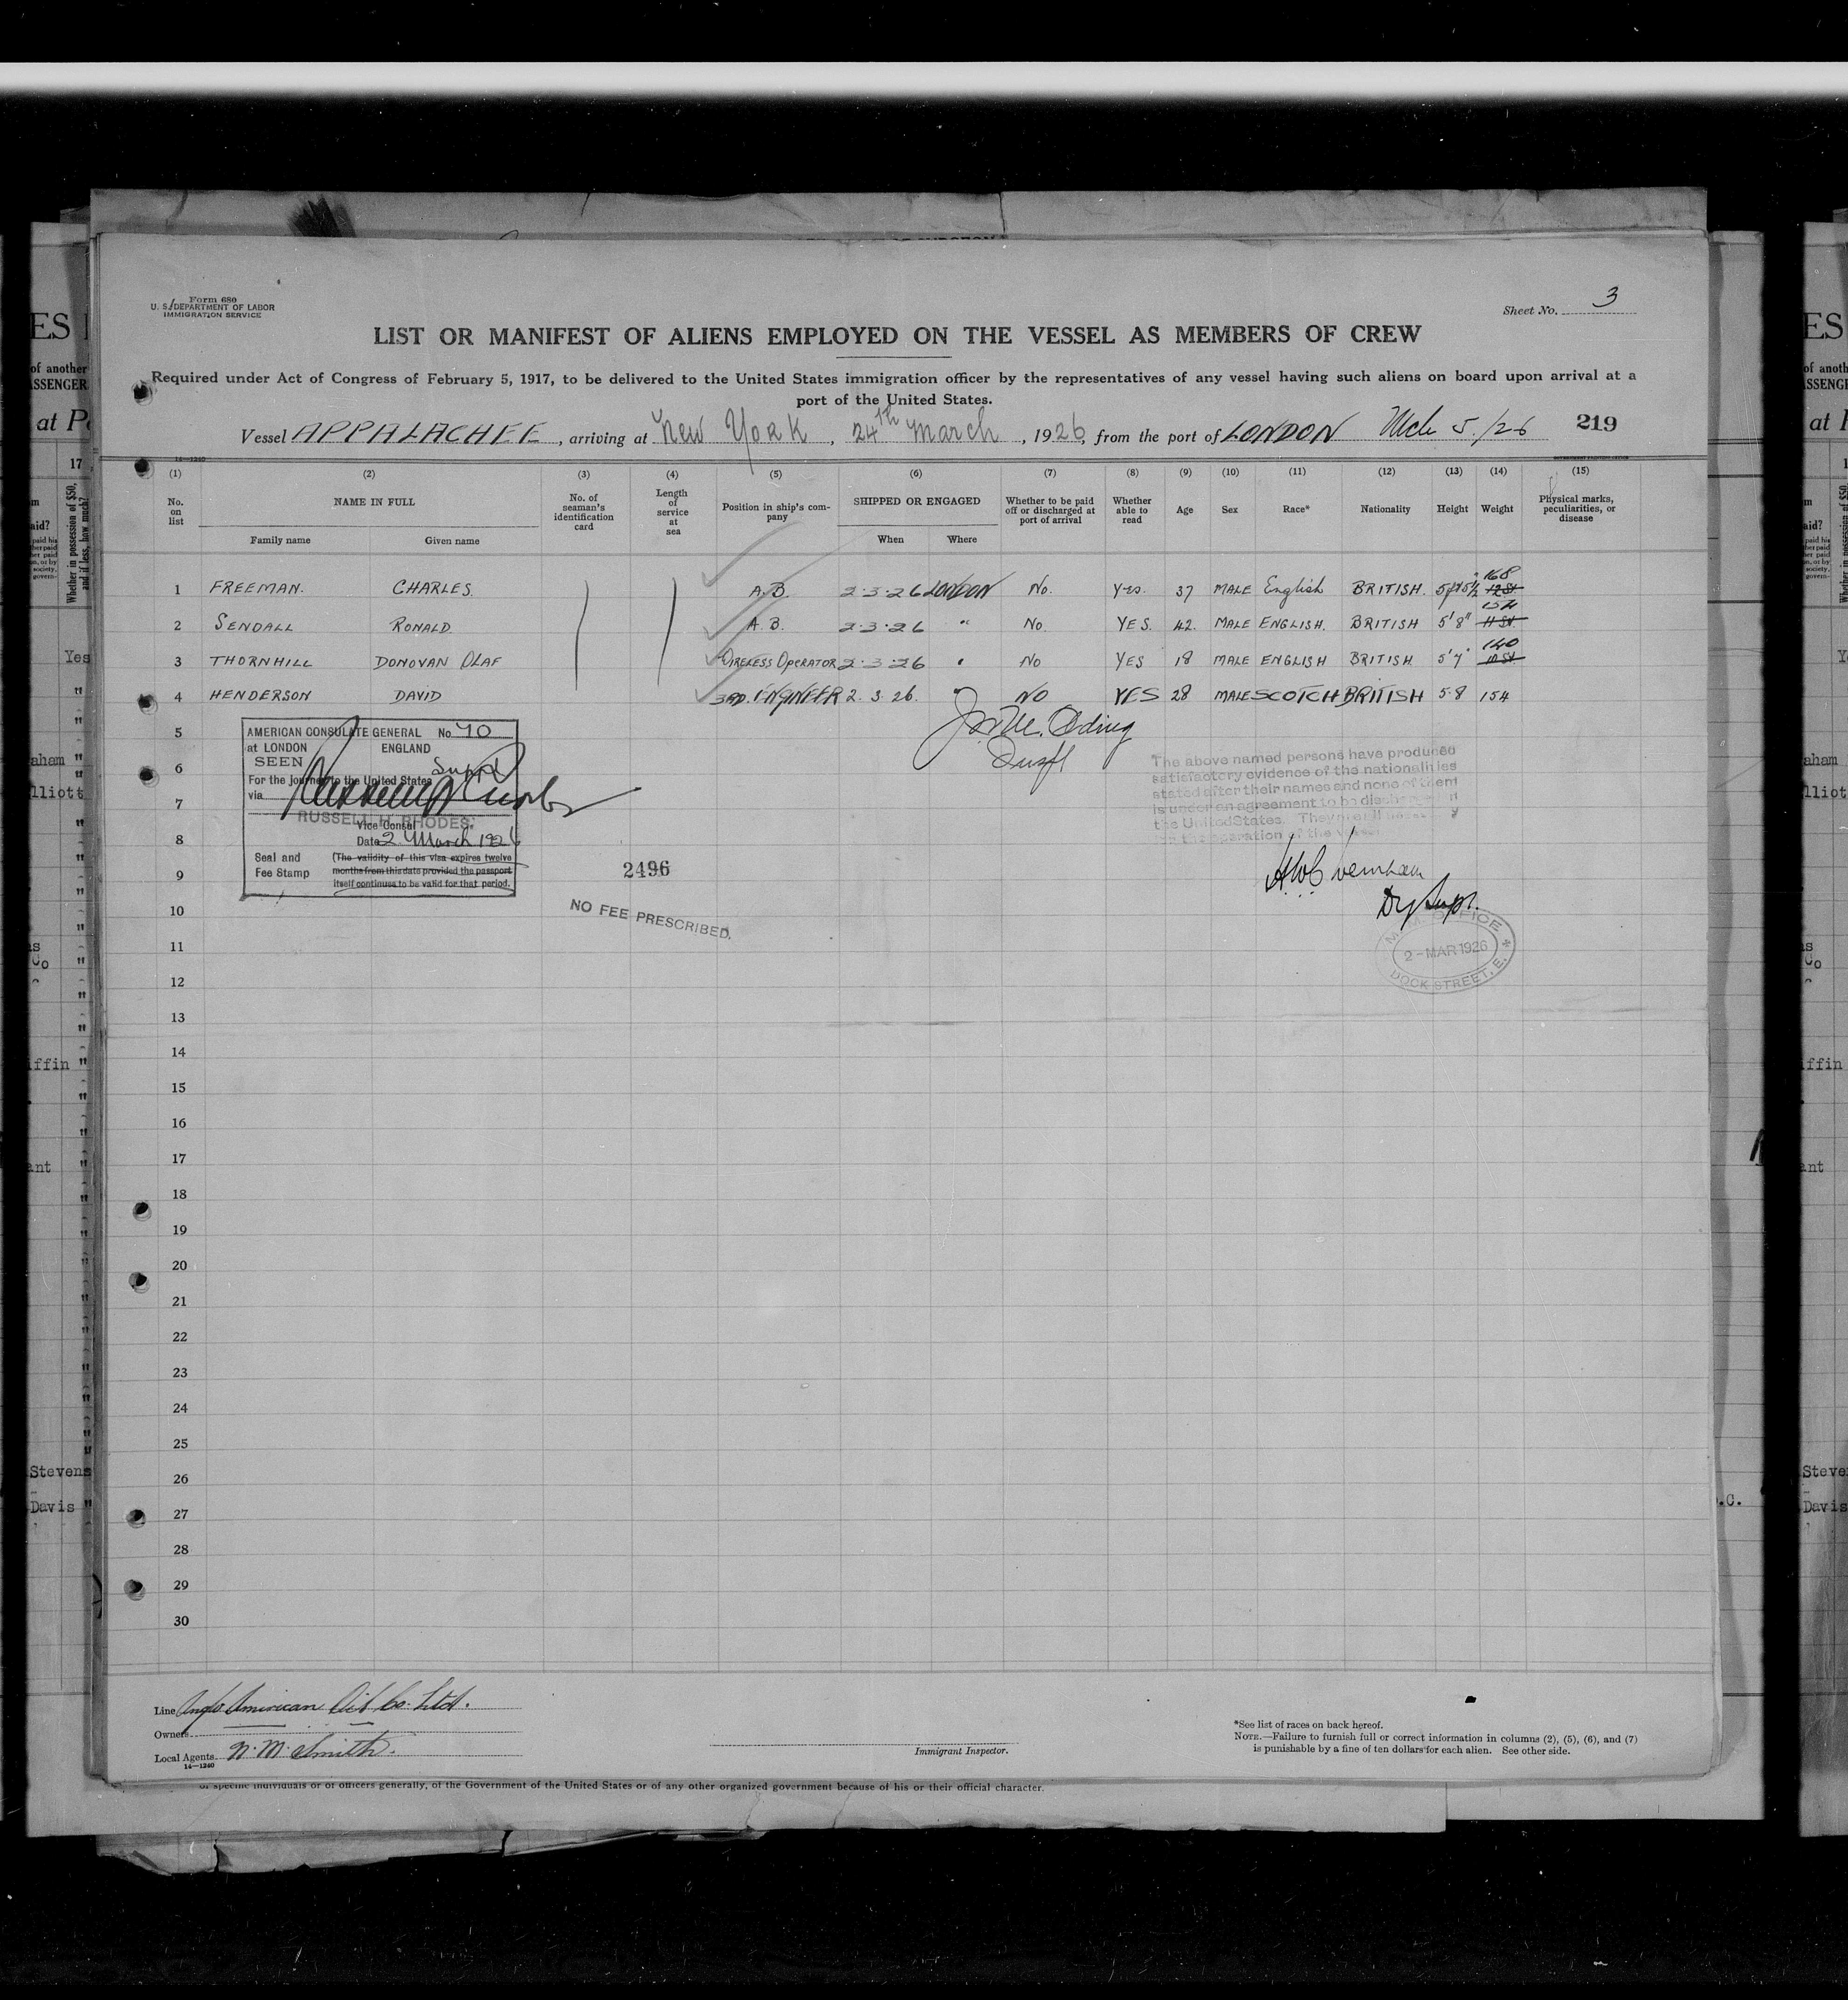 Form 680
U. S. DEPARTMENT OF LABOR
IMMIGRATION SERVICE
Sheet No. 3
LIST OR MANIFEST OF ALIENS EMPLOYED ON THE VESSEL AS MEMBERS OF CREW
Required under Act of Congress of February 5, 1917, to be delivered to the United States immigration officer by the representatives of any vessel having such aliens on board upon arrival at a
port of the United States.
Vessel APPALACHEE, arriving at New York, 24th March, 1926, from the port of LONDON Mch 5/26 219
(1) (2) (3) (4) (5) (6) (7) (8) (9) (10) (11) (12) (13) (14) (15)
No. on list
NAME IN FULL
Family name Given name
No. of seaman's identification card
Length of service at sea
Position in ship's company
SHIPPED OR ENGAGED
When Where
Whether to be paid off or discharged at port of arrival
Whether able to read
Age
Sex
Race*
Nationality
Height
Weight
Physical marks, peculiarities, or disease
1 FREEMAN. CHARLES. A.B. 2.3.26 LONDON No. Yes. 37 MALE English BRITISH. 5ft 5½" 168 12 St
2 SENDALL RONALD. A.B. 2.3.26 " No. YES. 42. MALE ENGLISH. BRITISH 5'8" 154 11 St.
3 THORNHILL DONOVAN OLAF WIRELESS OPERATOR 2.3.26 " No YES 18 MALE ENGLISH BRITISH 5'7" 140 10 St
4 HENDERSON DAVID 3RD. ENGINEER 2.3.26. " NO YES 28 MALE SCOTCH BRITISH 5.8 154
5
6
7
8
9
10
11
12
13
14
15
16
17
18
19
20
21
22
23
24
25
26
27
28
29
30
AMERICAN CONSULATE GENERAL No. 70
at LONDON ENGLAND
SEEN
For the journey to the United States
via
RUSSELL H. RHODES.
Vice Consul
Date 2 March 1926
Seal and Fee Stamp
(The validity of this visa expires twelve
months from this date provided the passport
itself continues to be valid for that period.
2496
NO FEE PRESCRIBED.
The above named persons have produced
satisfactory evidence of the nationalities
stated after their names and none of them
is under an agreement to be
the United States. They
the operation of the vessel
Dy Supt.
OFFICE
2-MAR 1926
DOCK STREET, E.
Line Anglo American Oil Co. Ltd.
Owners
Local Agents N. M. Smith.
14—1240
Immigrant Inspector.
*See list of races on back hereof.
NOTE.—Failure to furnish full or correct information in columns (2), (5), (6), and (7)
is punishable by a fine of ten dollars for each alien. See other side.
of specific individuals or of officers generally, of the Government of the United States or of any other organized government because of his or their official character.